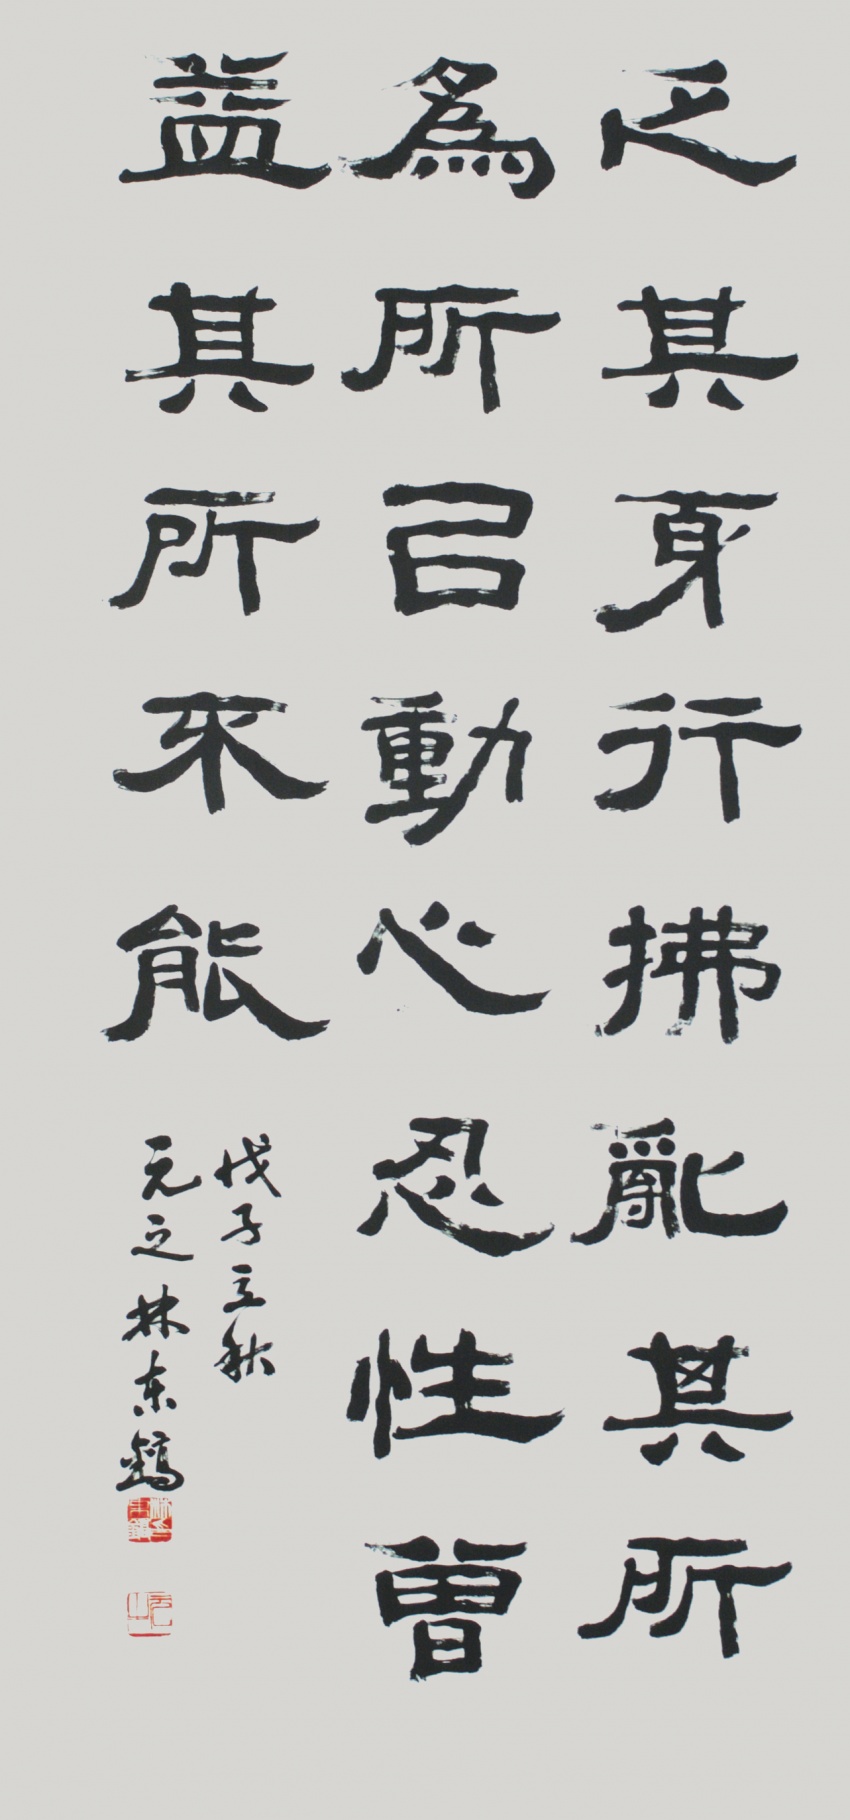 乏其身行拂亂其所
爲所㠯動心忍性曾
益其所不能
戊子立秋
元之林東鎬